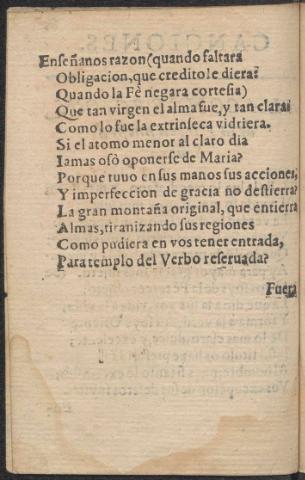 Enseñanos razon (quando faltara
Obligacion, que credito le diera?
Quando la Fè negara cortesia)
Que tan virgen el alma fue, y tan clara
Como lo fue la extrinseca vidriera.
Si el atomo menor al claro dia
Iamas osò oponerse de Maria?
Porque tuuo en sus manos sus acciones,
Y imperfeccion de gracia no destierra?
La gran montaña original, que entierra
Almas, tiranizando sus regiones
Como pudiera en vos tener entrada,
Para templo del Verbo reseruada?
Fuera